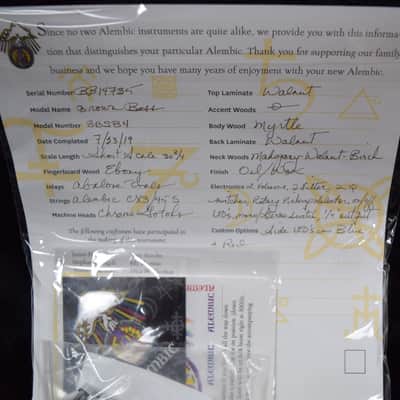 Since no two Alembic instruments are quite alike, we provide you with this informa-
tion that distinguishes your particular Alembic. Thank you for supporting our family
business and we hope you have many years of enjoyment with your new Alembic.
Serial Number BB19735
Model Name Brown Bass
Model Number BBSB4
Date Completed 7/23/19
Scale Length Short Scale 30 3/4
Fingerboard Wood Ebony
Inlays Abalone Ovals
Strings Alembic CX3 45 S
Machine Heads Chrome Gotohs
Top Laminate Walnut
Accent Woods
Body Wood Myrtle
Back Laminate Walnut
Neck Woods Mahogany-Walnut-Birch
Finish Oil/Wax
Electronics 2 Volume, 2 filter, 2 Q
switches, Rotary Pickup selector, on/off
LEDs, mono/stereo switch, 1/4" output
Custom Options Side LEDs in Blue
& Red
The following craftsmen have participated in
the making of this instrument:
ALEMBIC
ALEMBIC
ALEMBIC